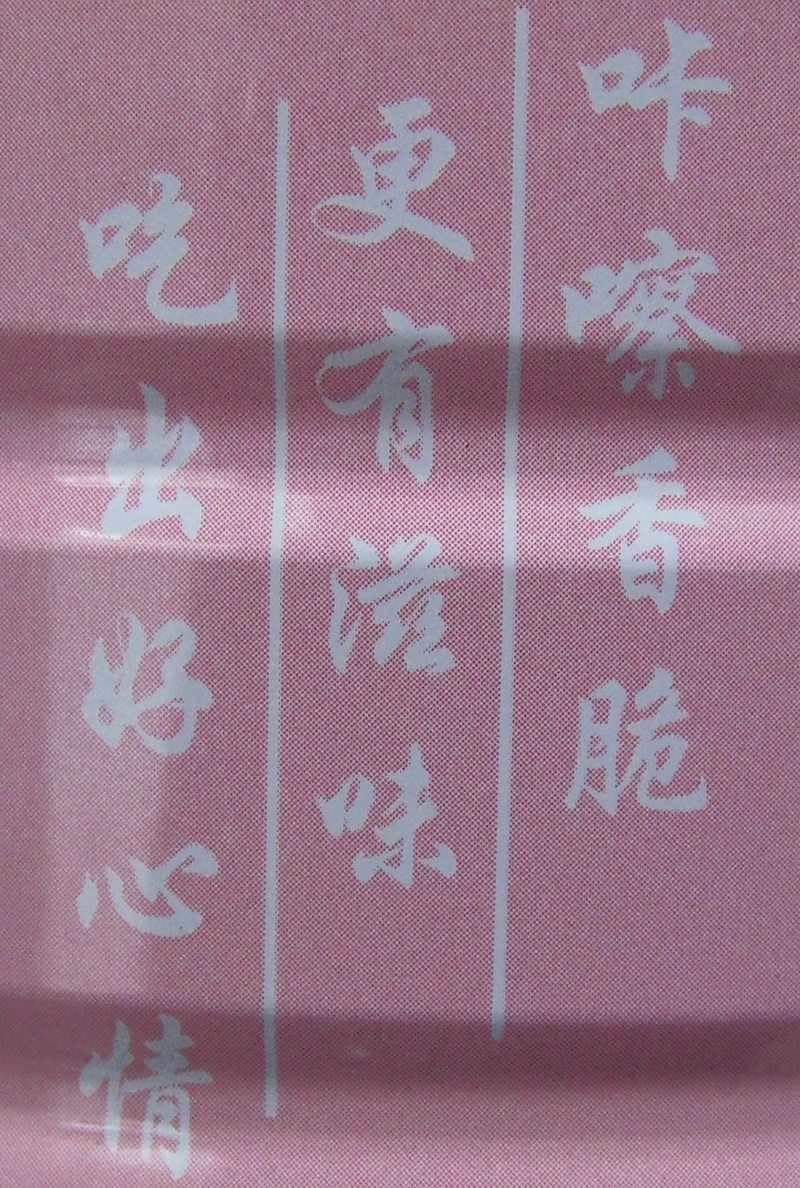 咔嚓香脆
更有滋味
吃出好心情